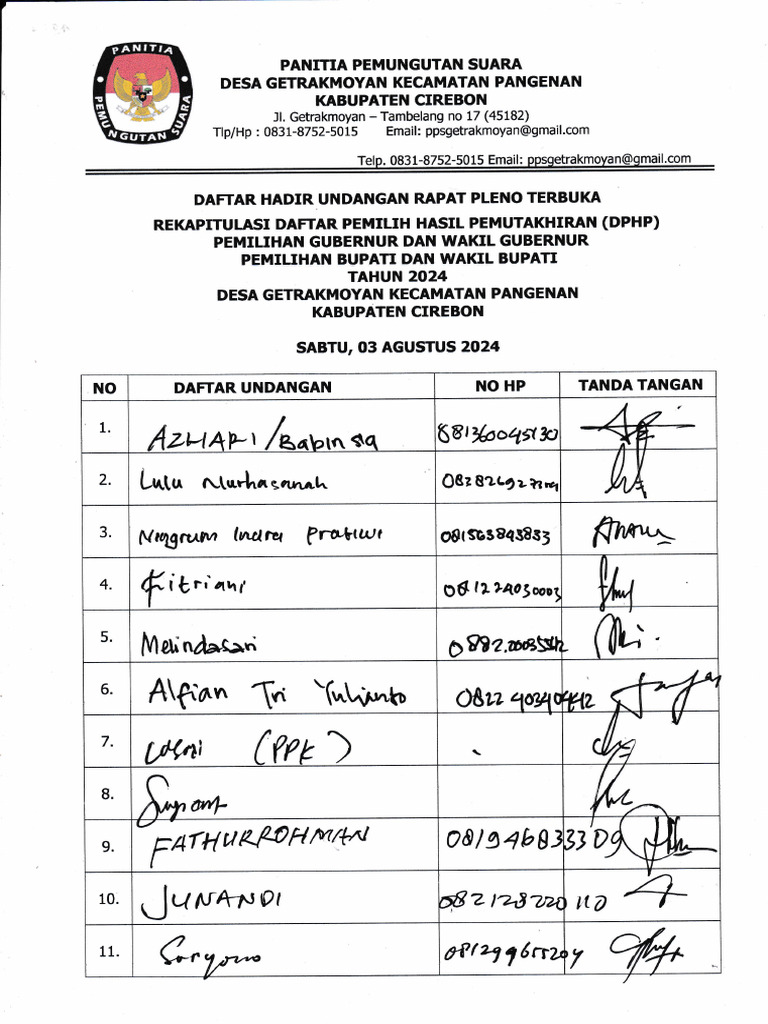 PANITIA
PEMUNGUTAN SUARA
PANITIA PEMUNGUTAN SUARA
DESA GETRAKMOYAN KECAMATAN PANGENAN
KABUPATEN CIREBON
Jl. Getrakmoyan – Tambelang no 17 (45182)
Tlp/Hp : 0831-8752-5015 Email: ppsgetrakmoyan@gmail.com
Telp. 0831-8752-5015 Email: ppsgetrakmoyan@gmail.com
DAFTAR HADIR UNDANGAN RAPAT PLENO TERBUKA
REKAPITULASI DAFTAR PEMILIH HASIL PEMUTAKHIRAN (DPHP)
PEMILIHAN GUBERNUR DAN WAKIL GUBERNUR
PEMILIHAN BUPATI DAN WAKIL BUPATI
TAHUN 2024
DESA GETRAKMOYAN KECAMATAN PANGENAN
KABUPATEN CIREBON
SABTU, 03 AGUSTUS 2024
NO DAFTAR UNDANGAN NO HP TANDA TANGAN
1. AZHARI /Babinsa 881360045130
2. Lulu Nurhasanah
3. Ningrum Indra Pratiwi 081563843833
4. Fitriani 081224030003
5. Melindasari
6. Alfian Tri Yulianto 0822 40340442
7. (PPK)
8.
9. FATHURROHMAN 081946833309
10. JUNANDI 082128220110
11. Soryono 081299655204